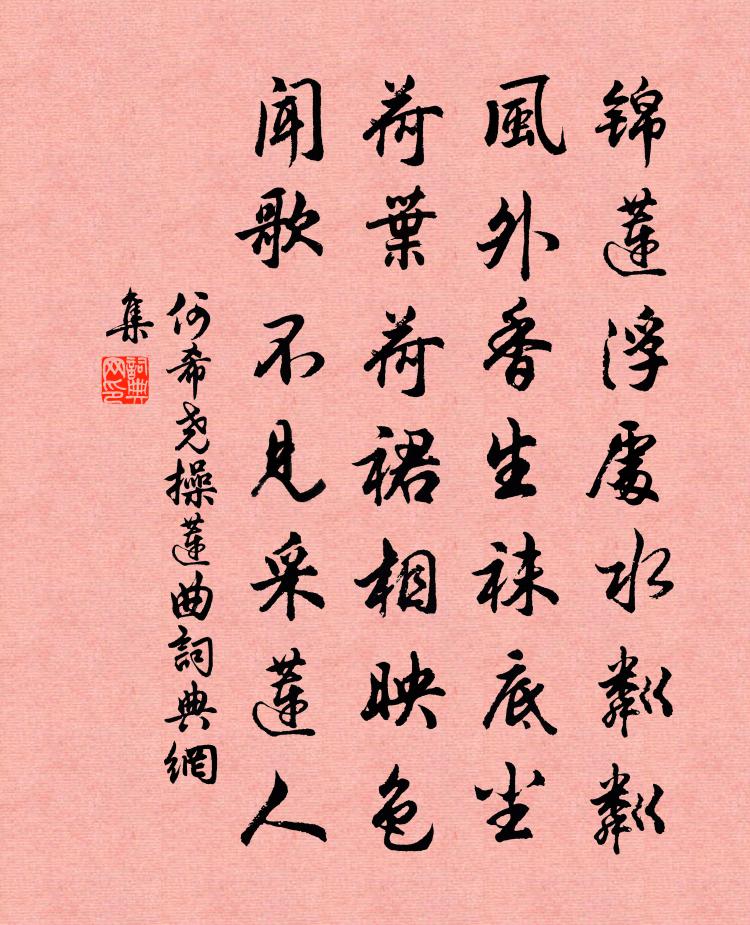 锦蓮浮處水粼粼
風外香生袜底尘
荷葉荷裙相映色
闻歌不見采蓮人
何希尧操蓮曲詞典網
集
詞典
网印